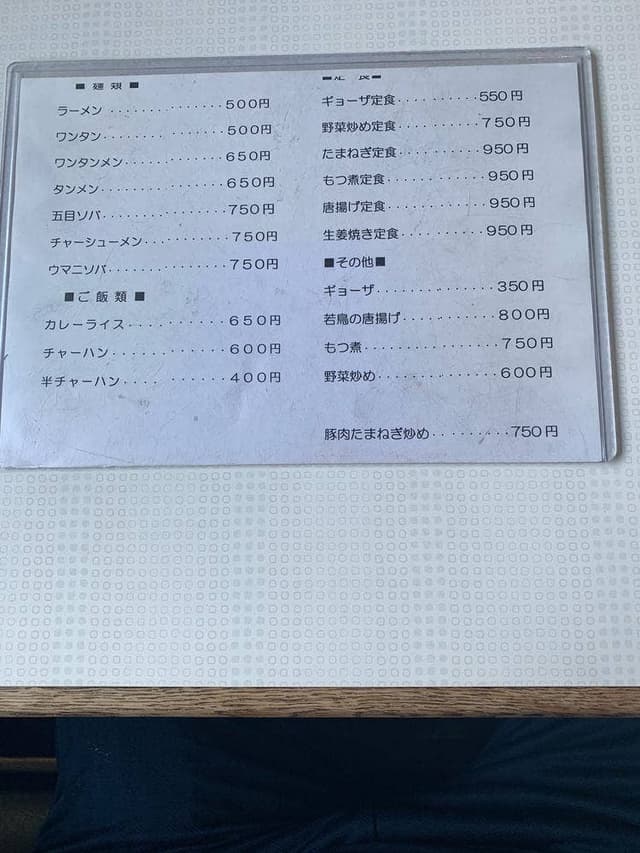 ■ 麺 類 ■
ラーメン・・・・・・・・・・・・・500円
ワンタン・・・・・・・・・・・・・500円
ワンタンメン・・・・・・・・・・・650円
タンメン・・・・・・・・・・・・・650円
五目ソバ・・・・・・・・・・・・・750円
チャーシューメン・・・・・・・・・750円
ウマニソバ・・・・・・・・・・・・750円
■ご 飯 類 ■
カレーライス・・・・・・・・・・・650円
チャーハン・・・・・・・・・・・・600円
半チャーハン・・・・ ・・・・・・・400円
■定 食■
ギョーザ定食・・・・・・・・・・550円
野菜炒め定食・・・・・・・・・・750円
たまねぎ定食・・・・・・・・・・950円
もつ煮定食・・・・・・・・・・・950円
唐揚げ定食・・・・・・・・・・・950円
生姜焼き定食・・・・・・・・・・950円
■その他■
ギョーザ・・・・・・・・・・・・350円
若鳥の唐揚げ・・・・・・・・・・800円
もつ煮・・・・・・・・・・・・・750円
野菜炒め・・・・・・・・・・・・600円
豚肉たまねぎ炒め・・・・・・・・・750円